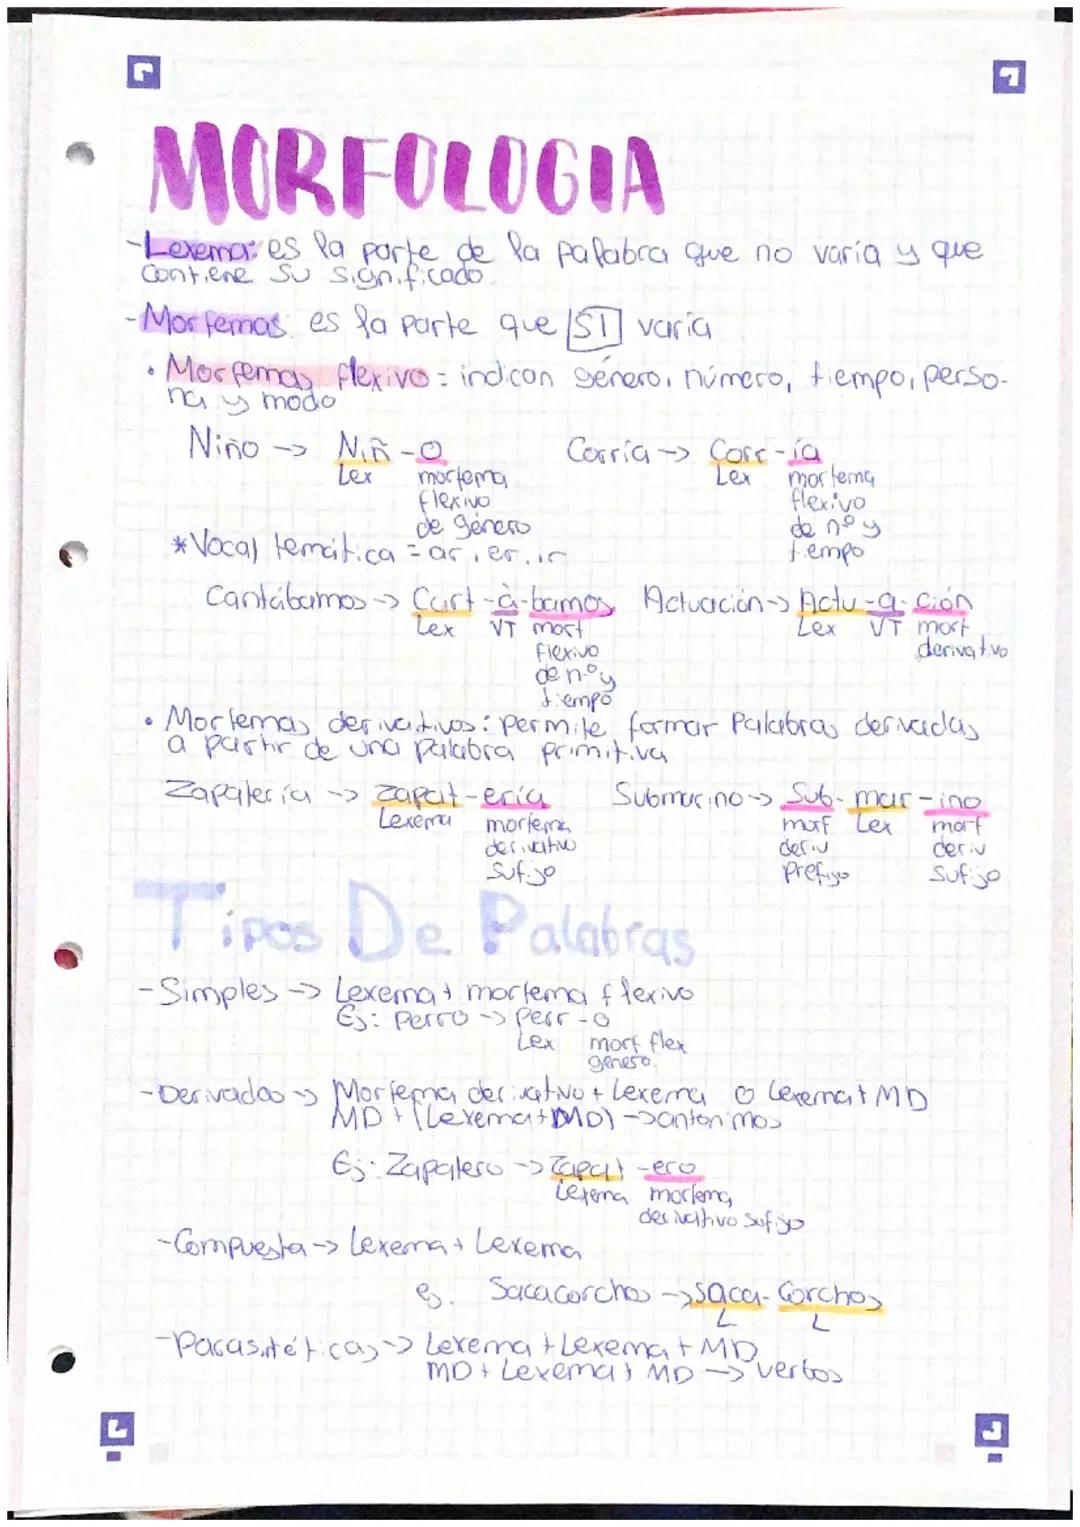 MORFOLOGIA
-Lexema: es la parte de la palabra que no varía y que
contiene su significado
-Morfemas: es la parte que SI varia
• Morfemas flexivo = indican género, número, tiempo, perso-
na y modo
Niño -> Niñ-o Corría -> Corr-ía
Lex morfema Lex morfema
flexivo flexivo
de género de nº y
tiempo
*Vocal temática = ar, er, ir
Cantábamos -> Cant-à-bamos Actuación -> Actu-a-ción
Lex VT morf Lex VT morf
flexivo derivativo
de nº y
tiempo
• Morfemas derivativos: permite formar Palabras derivadas
a partir de una palabra primitiva
Zapatería -> zapat-ería Submarino -> Sub-mar-ino
Lexema morfema morf Lex morf
derivativo deriv deriv
Sufijo Prefijo Sufijo
Tipos De Palabras
-Simples -> Lexema + morfema flexivo
Ej: perro -> perr-o
Lex morf flex
genero
-Derivadas -> Morfema derivativo + Lexema o lexema + MD
MD + (Lexema + MD) -> antonimos
Ej: Zapatero -> Zapat-ero
Lexema morfema
derivativo sufijo
-Compuesta -> Lexema + Lexema
ej. Sacacorchos -> saca-Corchos
L L
-Parasintéticas -> Lexema + Lexema + MD
MD + Lexema + MD -> verbos